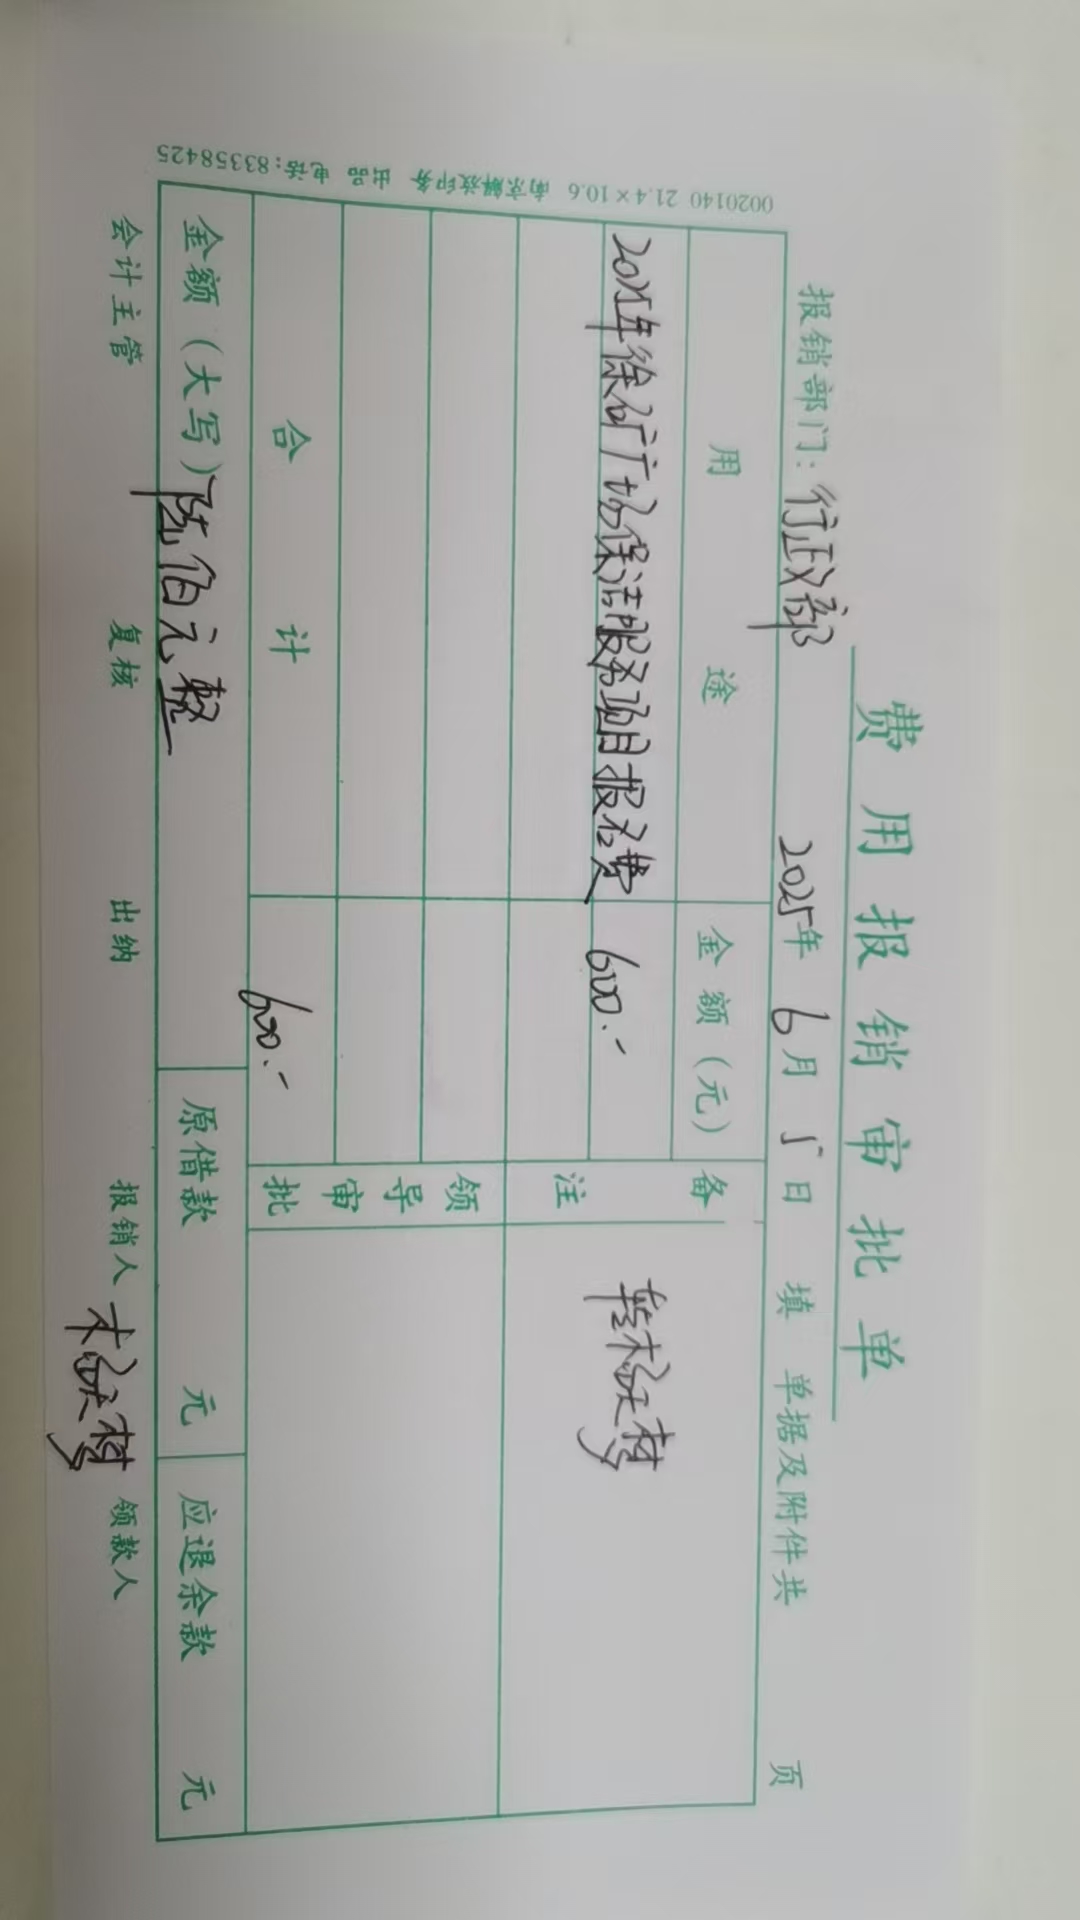 费用报销审批单
报销部门：行政部 2025年 6月 5日 填 单据及附件共 页
用途 金额（元） 备注
2025年徐矿广场保洁服务项目报名费 600.-
转
领导审批
合计 600.-
金额（大写）陆佰元整 原借款 元 应退余款 元
会计主管 复核 出纳 报销人 领款人
0020140 21.4×10.6 南京解放印务 出品 电话:83358425